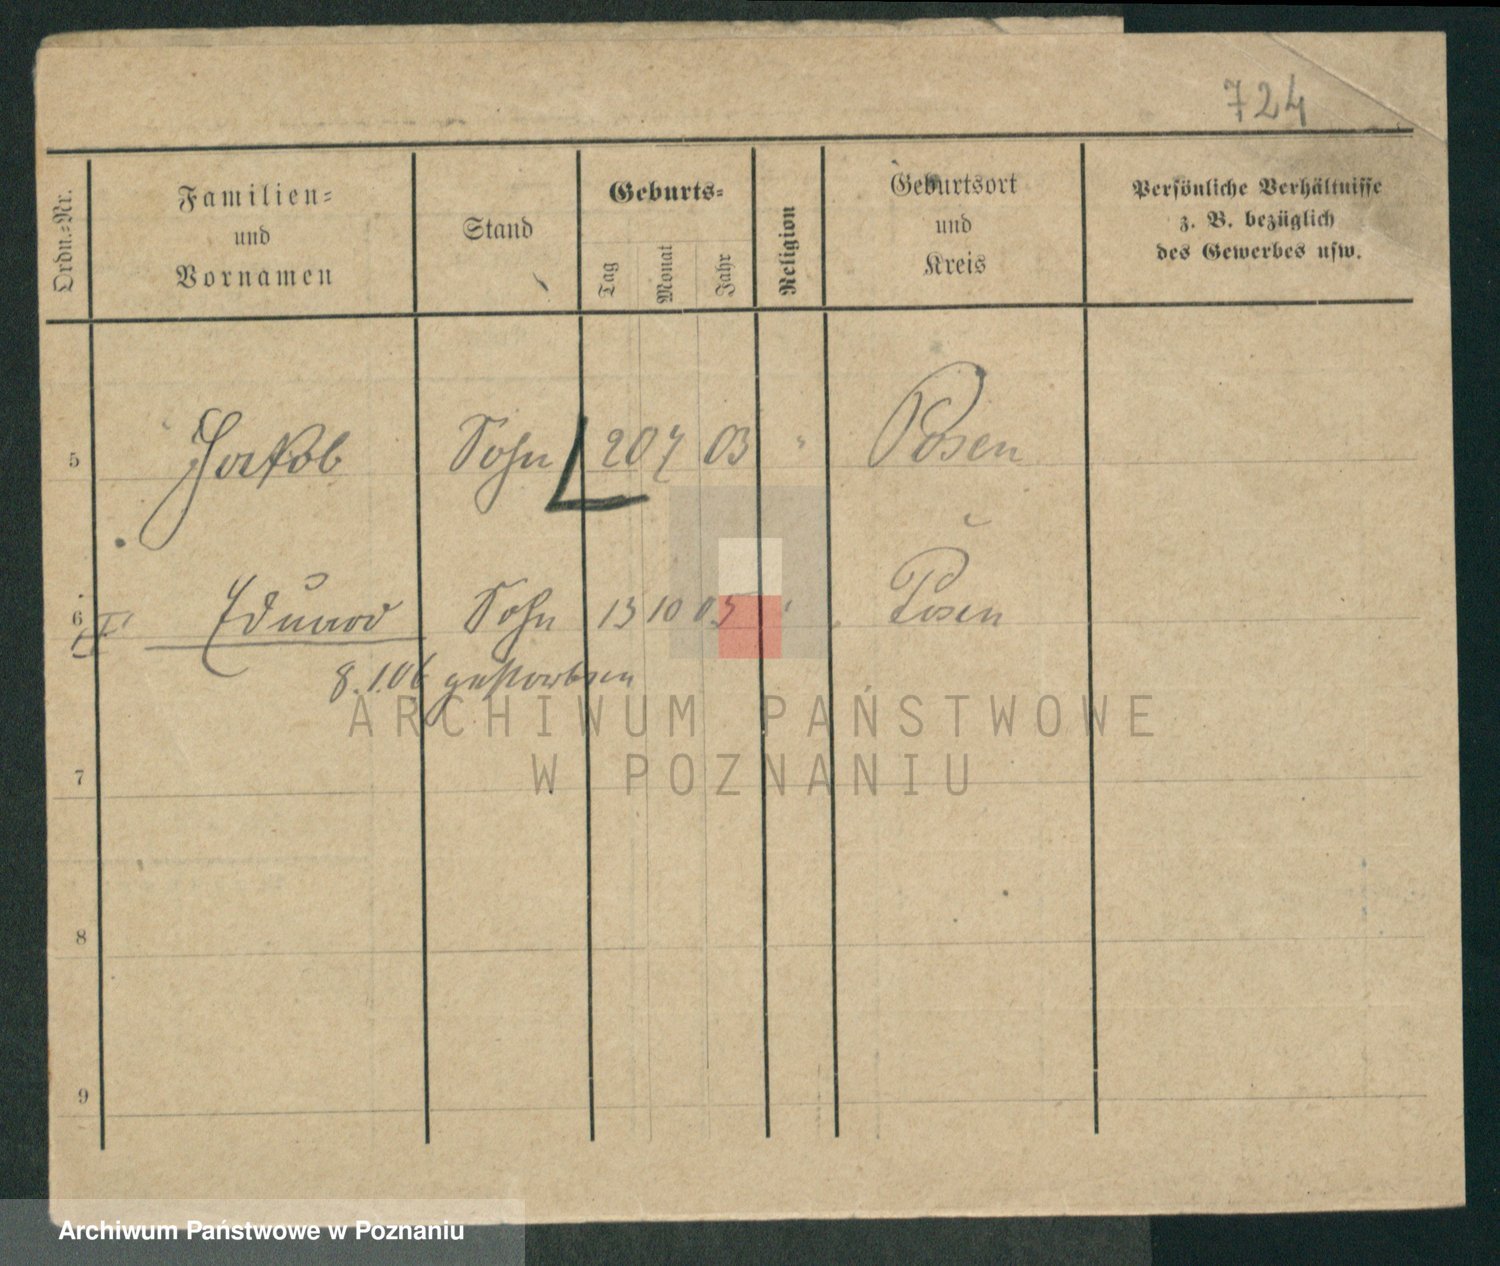 724
Ordn.=Nr.
Familien=
und
Vornamen
Stand
Geburts=
Tag
Monat
Jahr
Religion
Geburtsort
und
Kreis
Persönliche Verhältnisse
z. B. bezüglich
des Gewerbes usw.
5 Jakob Sohn 20 7 03 " Posen
6 Eduard Sohn 13 10 05 " Posen
8.1.06 gestorben
ARCHIWUM PAŃSTWOWE
W POZNANIU
7
8
9
Archiwum Państwowe w Poznaniu